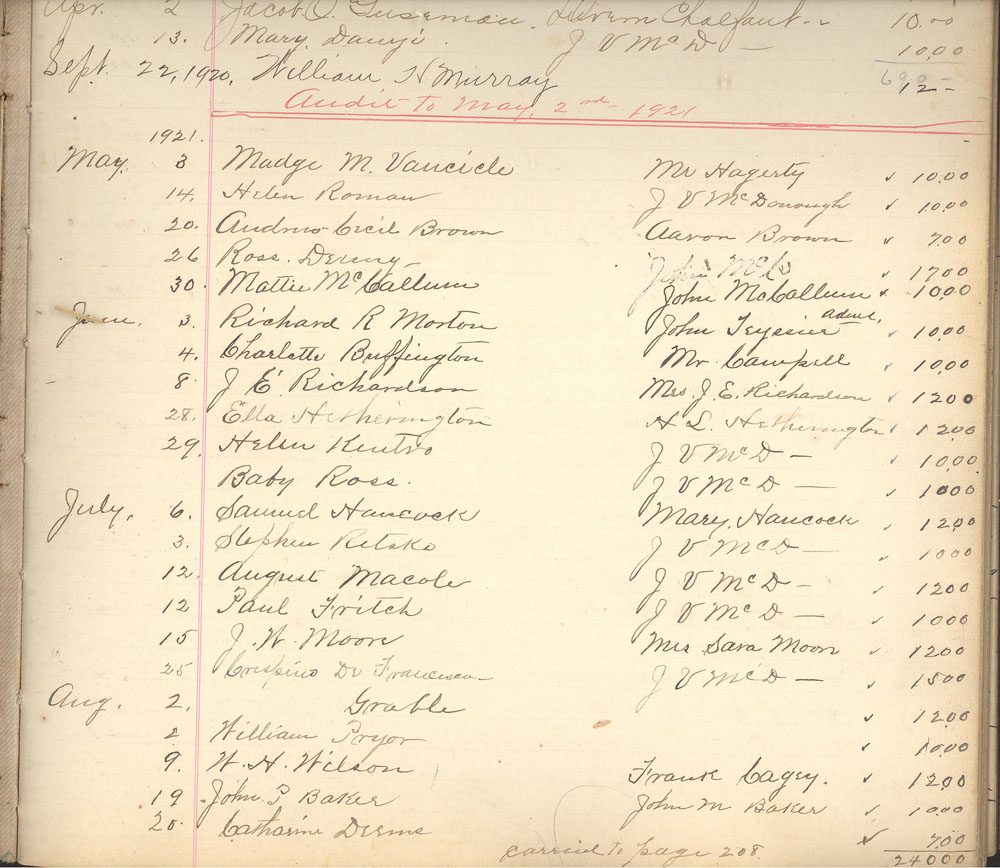 Apr. 2 Jacob O. Guseman. Livern Chalfant. 10.00
13. Mary Danyi. J V McD — 10,00
690 —
Sept. 22, 1920, William H Murray 12 —
Audit to May, 2nd 1921
1921.
May. 3 Madge M. Vancicle Mr Hagerty ✓ 10.00
14. Helen Roman J V McDonough ✓ 10.00
20. Andrew Cecil Brown Aaron Brown ✓ 7.00
26 Ross. Denny John McC ✓ 17.00
30. Mattie McCallum John McCallum ✓ 10.00
June. 3. Richard R Morton John Teyssier admr. ✓ 10.00
4. Charlette Buffington Mr Cawpell ✓ 10.00
8. J E. Richardson Mrs. J. E. Richardson ✓ 12 00
28. Ella Hetherington H L. Hetherington ✓ 12.00
29, Helen Kentro J V McD — ✓ 10.00
Baby Ross. J V McD — ✓ 10 00
July, 6. Samuel Hancock Mary, Hancock ✓ 12.00
3. Stephen Retsko J V McD — ✓ 10 00
12. August Macole J V McD — ✓ 12 00
12 Paul Fritch J V McD — ✓ 10 00
15 J. W. Moon Mrs Sara Moon ✓ 12 00
25 Crespino De Francisco J V McD — ✓ 15 00
Aug. 2. Grable ✓ 12.00
2 William Pryor ✓ 10.00
9. W. H. Wilson Frank Cagey. ✓ 12.00
19 John P Baker John M Baker ✓ 10.00
20. Catharine Deems ✓ 7.00
carried to page 208 240 00